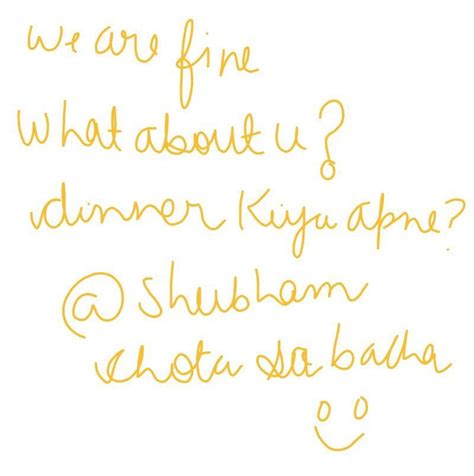 we are fine
What about u?
dinner Kiya apne?
@ Shubham
chota sa bacha